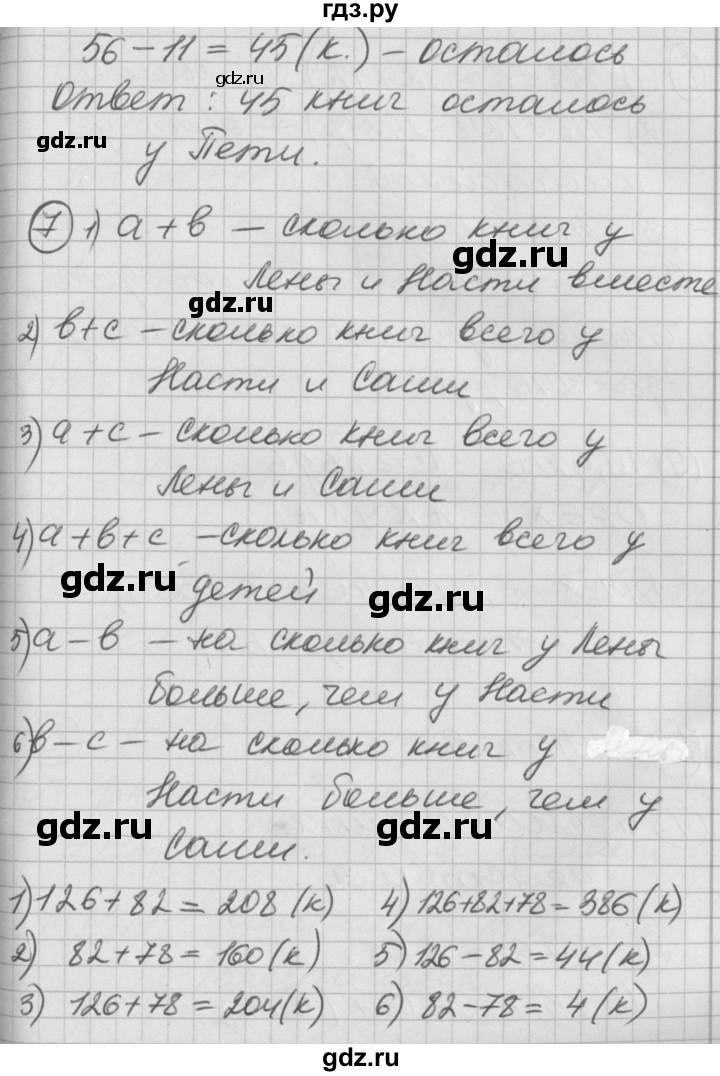 гдз.ру
56 - 11 = 45 (к.) - осталось
Ответ: 45 книг осталось
у Пети.
7 1) a + в - сколько книг у
Лены и Насти вместе
2) в + с - сколько книг всего у
Насти и Саши
3) а + с - сколько книг всего у
Лены и Саши
4) а + в + с - сколько книг всего у
детей
5) а - в - на сколько книг у Лены
больше, чем у Насти
6) в - с - на сколько книг у
Насти больше, чем у
Саши.
1) 126 + 82 = 208 (к) 4) 126+82+78 = 386 (к)
2) 82 + 78 = 160 (к) 5) 126 - 82 = 44 (к)
3) 126 + 78 = 204 (к) 6) 82 - 78 = 4 (к)
gdz.ru
gdz.ru
gdz.ru
gdz.ru
gdz.ru
gdz.ru
gdz.ru
gdz.ru
gdz.ru
gdz.ru
gdz.ru
gdz.ru